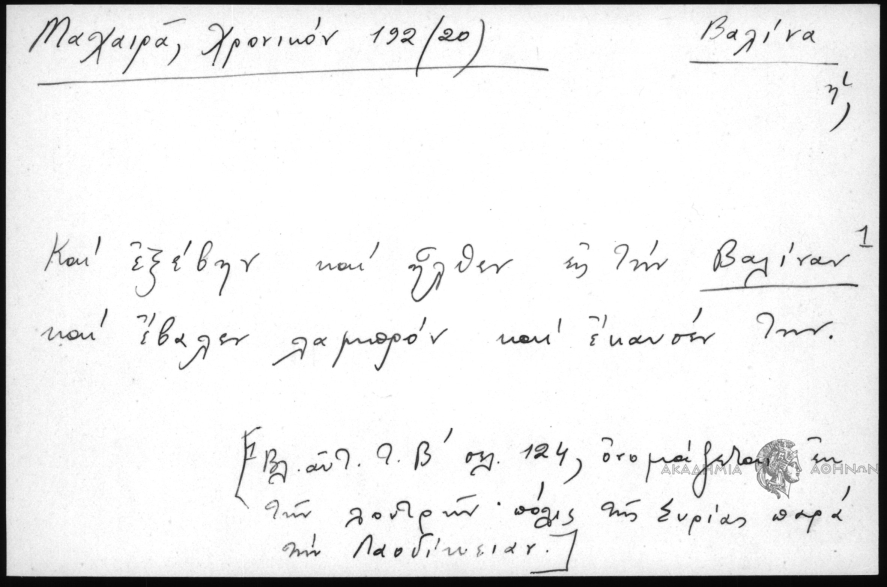 Μαχαιρᾶ, Χρονικόν 192/20) Βαλίνα
ἡ,
Καί ἐξέβην καί ἦλθεν εἰς τήν Βαλίναν 1
καί ἔβαλεν λαμπρόν καί ἔκαυσέν την.
[1 Βλ. αὐτ. τ. Β΄ σελ. 124, ὀνομάζεται ἐκ
τῶν λουτρῶν· πόλις τῆς Συρίας παρά
τήν Λαοδίκειαν.]
ΑΚΑΔΗΜΙΑ ΑΘΗΝΩΝ